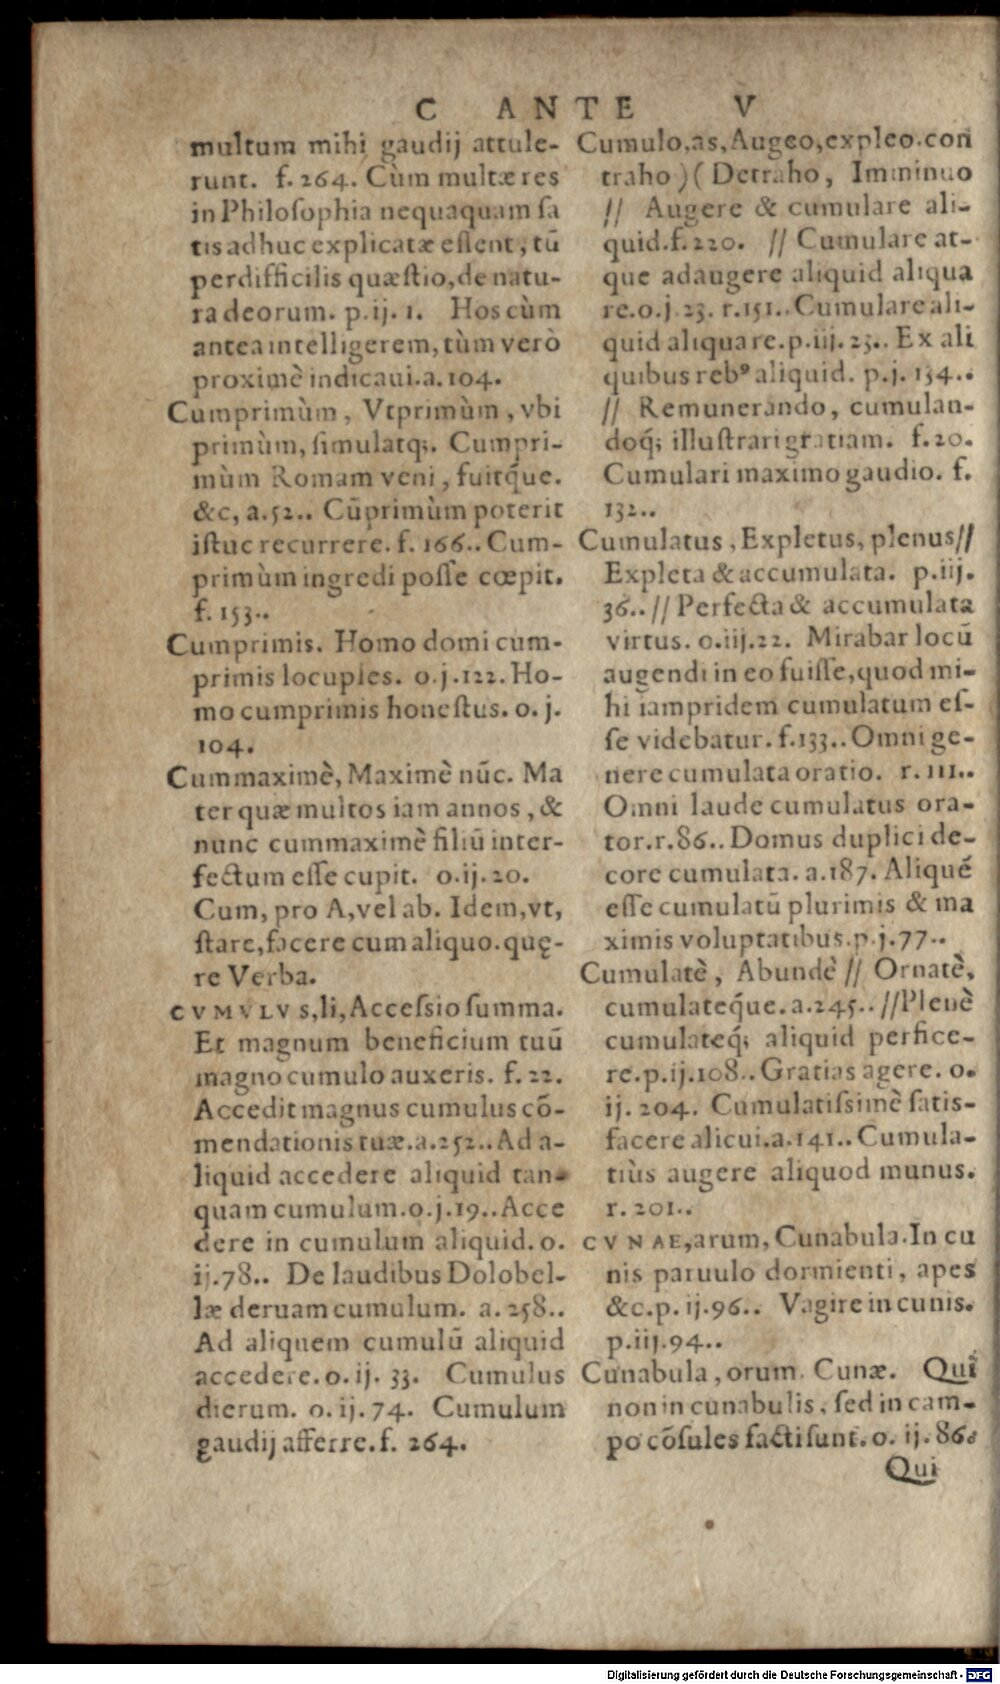 C ANTE V
multum mihi gaudij attule-
runt. f. 264. Cùm multæ res
in Philosophia nequaquam sa
tis adhuc explicatæ essent, tū
perdifficilis quæstio, de natu-
ra deorum. p. ij. 1. Hos cùm
antea intelligerem, tùm verò
proximè indicaui. a. 104.
Cumprimùm, Vtprimùm, vbi
primùm, simulatq;. Cumpri-
mùm Romam veni, fuitq́ue.
&c, a. 52.. Cūprimùm poterit
istuc recurrere. f. 166.. Cum-
primùm ingredi posse cœpit.
f. 153..
Cumprimis. Homo domi cum-
primis locuples. o. j. 122. Ho-
mo cumprimis honestus. o. j.
104.
Cummaximè, Maximè nūc. Ma
ter quæ multos iam annos, &
nunc cummaximè filiū inter-
fectum esse cupit. o. ij. 20.
Cum, pro A, vel ab. Idem, vt,
stare, facere cum aliquo. quę-
re Verba.
CVMVLVS, li, Accessio summa.
Et magnum beneficium tuū
magno cumulo auxeris. f. 22.
Accedit magnus cumulus cō-
mendationis tuæ. a. 252.. Ad a-
liquid accedere aliquid tan-
quam cumulum. o. j. 19.. Acce
dere in cumulum aliquid. o.
ij. 78.. De laudibus Dolobel-
læ deruam cumulum. a. 258..
Ad aliquem cumulū aliquid
accedere. o. ij. 33. Cumulus
dierum. o. ij. 74. Cumulum
gaudij afferre. f. 264.
Cumulo, as, Augeo, expleo. con
traho )( Detraho, Imminuo
// Augere & cumulare ali-
quid. f. 220. // Cumulare at-
que adaugere aliquid aliqua
re. o. j. 23. r. 151.. Cumulare ali-
quid aliqua re. p. iij. 23.. Ex ali
quibus rebꝰ aliquid. p. j. 134..
// Remunerando, cumulan-
doq́; illustrari gratiam. f. 20.
Cumulari maximo gaudio. f.
132..
Cumulatus, Expletus, plenus//
Expleta & accumulata. p. iij.
36.. // Perfecta & accumulata
virtus. o. iij. 22. Mirabar locū
augendi in eo fuisse, quod mi-
hi iampridem cumulatum es-
se videbatur. f. 133.. Omni ge-
nere cumulata oratio. r. 111..
Omni laude cumulatus ora-
tor. r. 86.. Domus duplici de-
core cumulata. a. 187. Aliqué
esse cumulatū plurimis & ma
ximis voluptatibus. p. j. 77..
Cumulatè, Abundè // Ornatè,
cumulateq́ue. a. 245.. // Plenè
cumulateq́; aliquid perfice-
re. p. ij. 108.. Gratias agere. o.
ij. 204. Cumulatissimè satis-
facere alicui. a. 141.. Cumula-
tiùs augere aliquod munus.
r. 201..
CVNAE, arum, Cunabula. In cu
nis paruulo dormienti, apes
&c. p. ij. 96.. Vagire in cunis.
p. iij. 94..
Cunabula, orum. Cunæ. Qui
non in cunabulis, sed in cam-
po cōsules facti sunt. o. ij. 86.
Qui
Digitalisierung gefördert durch die Deutsche Forschungsgemeinschaft - DFG